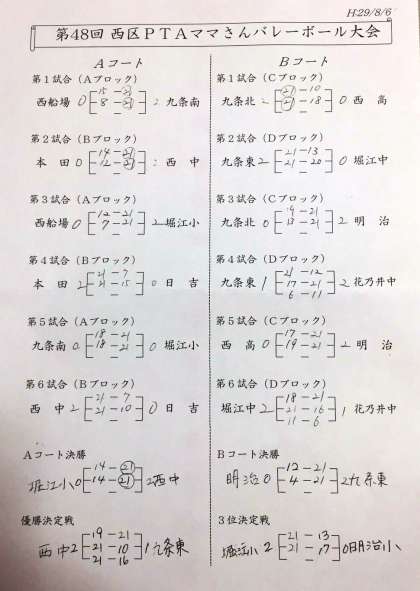 H:29/8/6
第48回 西区PTAママさんバレーボール大会
Aコート
第1試合（Aブロック）
西船場 0 15 - 21 2 九条南
8 - 21
第2試合（Bブロック）
本田 0 14 - 21 2 西中
12 - 21
第3試合（Aブロック）
西船場 0 12 - 21 2 堀江小
7 - 21
第4試合（Bブロック）
本田 2 21 - 7 0 日吉
21 - 15
第5試合（Aブロック）
九条南 0 18 - 21 0 堀江小
18 - 21
第6試合（Bブロック）
西中 2 21 - 7 0 日吉
21 - 10
Aコート決勝
堀江小 0 14 - 21 2 西中
14 - 21
優勝決定戦
西中 2 19 - 21 1 九条東
21 - 10
21 - 16
Bコート
第1試合（Cブロック）
九条北 2 21 - 10 0 西高
21 - 18
第2試合（Dブロック）
九条東 2 21 - 13 0 堀江中
21 - 20
第3試合（Cブロック）
九条北 0 - 21 2 明治
13 - 21
第4試合（Dブロック）
九条東 1 21 - 12 2 花乃井中
17 - 21
6 - 11
第5試合（Cブロック）
西高 0 17 - 21 2 明治
19 - 21
第6試合（Dブロック）
堀江中 2 18 - 21 1 花乃井中
21 - 16
11 - 6
Bコート決勝
明治 0 12 - 21 2 九条東
4 - 21
3位決定戦
堀江小 2 21 - 13 0 明治小
21 - 17